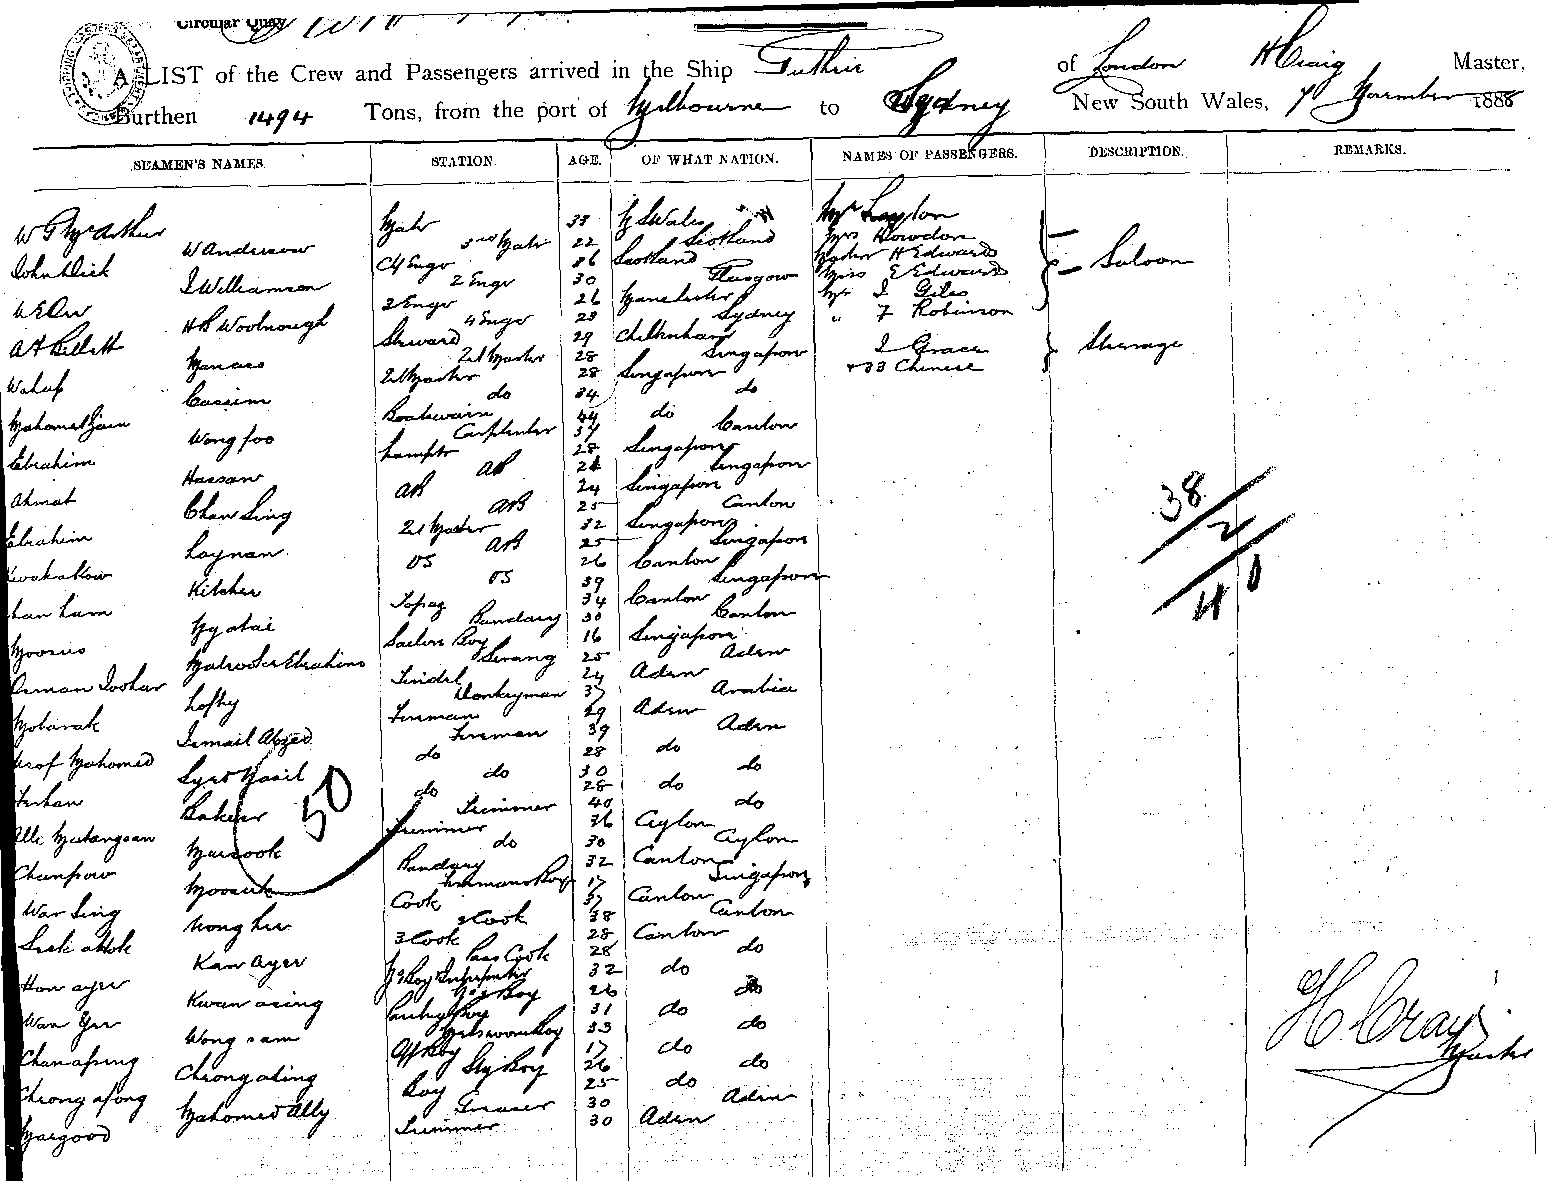 Circular Quay
A LIST of the Crew and Passengers arrived in the Ship Guthrie of London H Craig Master,
Burthen 1494 Tons, from the port of Melbourne to Sydney New South Wales, 7 November 1888
SEAMEN'S NAMES. STATION. AGE. OF WHAT NATION. NAMES OF PASSENGERS. DESCRIPTION. REMARKS.
W G McArthur Mate 33 N S Wales Mr Laydon
W Anderson 3rd Mate 22 Scotland Mrs Howdon
John Dick Ch Engr 36 Scotland Master H Edwards
J Williamson 2 Engr 30 Glasgow Miss E Edwards Saloon
W E Orr 3 Engr 26 Manchester Mr J Giles
H B Woolnough 4 Engr 23 Sydney " F Robinson
A H Billett Steward 29 Cheltenham
Manaes 2d Master 28 Singapore J Grace Steerage
Wahab 2d Master 28 Singapore + 33 Chinese
Cassim do 34 do
Mahomet Jan Boatswain 44 do
Wong foo Carpenter 37 Canton
Ebrahim Lamptr 28 Singapore
Hassan AB 24 Singapore
Ahmat AB 24 Singapore
Chan Sing AB 25 Canton
Ebrahim 2d Master 32 Singapore
Laynan AB 25 Singapore
OS 26 Canton
Kitcher OS 39 Singapore
Topaz 34 Canton
Ngatai Bandary 30 Canton
Sailors Boy 16 Singapore
Ebrahim Serang 25 Aden
Tindel 24 Aden
Lofty Donkeyman 37 Arabia
Mobarak Fireman 29 Aden
Ismail Fireman 39 Aden
Mahomed do 28 do
Syed do 30 do
Farhan do 28 do
Baker Trimmer 40 do
Trimmer 36 Ceylon
Marcook do 30 Ceylon
Chunpow Bandary 32 Canton
Firemans Boy 17 Singapore
War Sing Cook 37 Canton
Wong hee 2 Cook 38 Canton
3 Cook 28 Canton
Kan Ayer Pass Cook 28 do
How ayer 32 do
Kwan asing Boy 26 do
Wan Yee Pantry Boy 31 do
Wong sam Messroom Boy 33 do
Chanapeng Boy 17 do
Cheong ating Boy 26 do
Cheong afong Boy 25 do
Mahomed Ally Greaser 30 Aden
Margood Trimmer 30 Aden
50
38
2
40
H Craig
Master